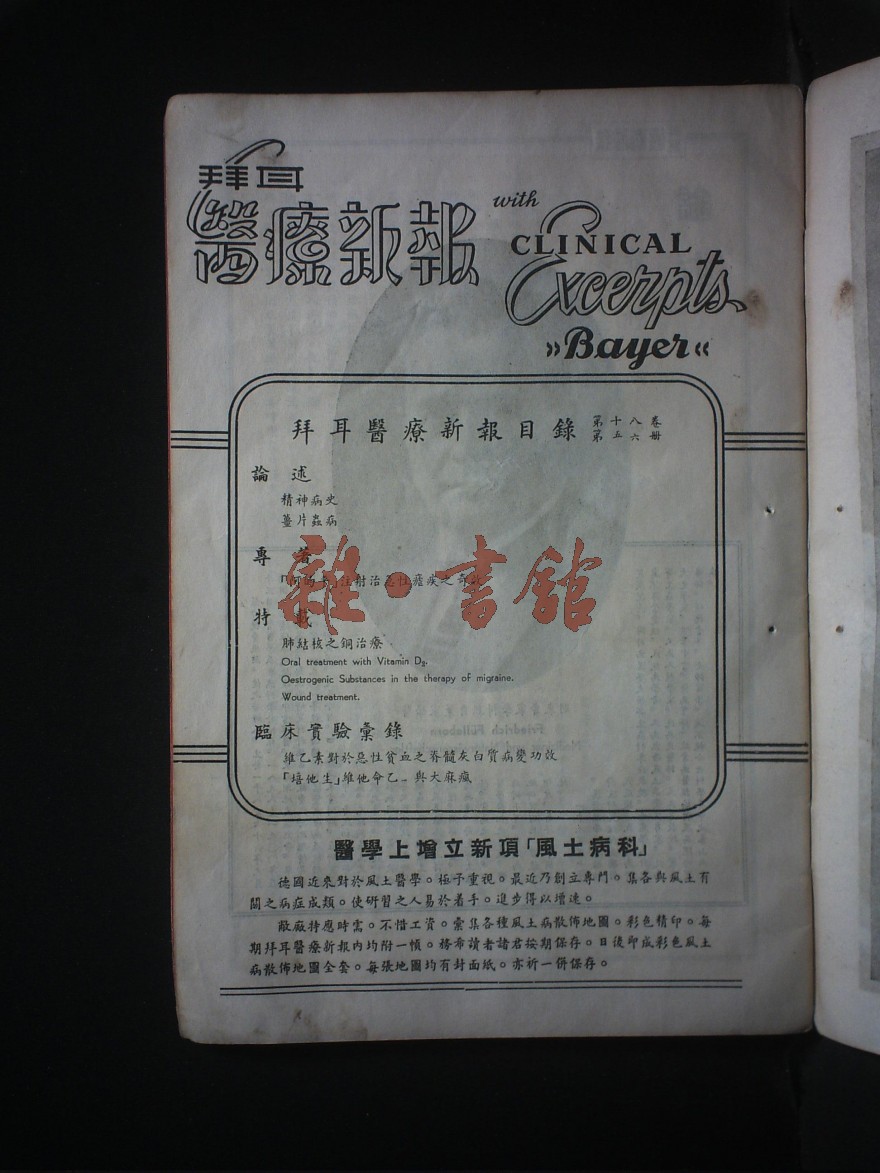 拜耳
醫療新報
with
CLINICAL
Excerpts
»Bayer«
拜耳醫療新報目錄
第十八卷
第五六册
論述
精神病史
薑片蟲病
專著
注射治惡性瘧疾之奇效
特載
肺結核之銅治療
Oral treatment with Vitamin D₂.
Oestrogenic Substances in the therapy of migraine.
Wound treatment.
臨床實驗彙錄
維乙素對於惡性貧血之脊髓灰白質病變功效
「培他生」維他命乙₁與大麻瘋
雜·書館
醫學上增立新項「風土病科」
德國近來對於風土醫學。極予重視。最近乃創立專門。集各與風土有
關之病症成類。使研習之人易於着手。進步得以增速。
敝廠特應時需。不惜工資。彙集各種風土病散佈地圖。彩色精印。每
期拜耳醫療新報內均附一幀。務希讀者諸君按期保存。日後卽成彩色風土
病散佈地圖全套。每張地圖均有封面紙。亦祈一併保存。